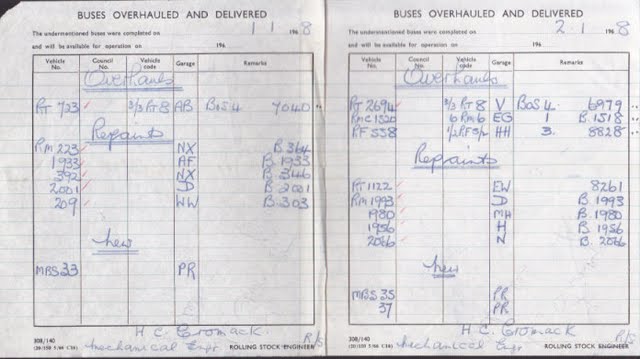 BUSES OVERHAULED AND DELIVERED
The undermentioned buses were completed on 1 1 1968
and will be available for operation on 196
Vehicle No. Council No. Vehicle code Garage Remarks
Overhauls
RT 723 3/3 RT 8 AB BoS 4 7040
Repaints
RM 223 NX B. 364
1933 AF B. 1933
392 NX B. 346
2001 D B. 2001
209 WW B. 303
New
MBS 33 PR
H. C. Cromack. R/S
308/140 Mechanical Engr ROLLING STOCK ENGINEER
BUSES OVERHAULED AND DELIVERED
The undermentioned buses were completed on 2. 1 1968
and will be available for operation on 196
Vehicle No. Council No. Vehicle code Garage Remarks
Overhauls
RT 2694 3/3 RT 8 V BoS 4. 6979
RMC 1520 6 RM 6 EG 1 B. 1518
RF 538 HH 3. 8828
Repaints
RT 1122 EW 8261
RM 1993 D B. 1993
1980 MH B. 1980
1956 H B. 1956
2066 N B. 2066
New
MBS 35 PR
37 PR
H. C. Cromack
308/140 Mechanical Engr. ROLLING STOCK ENGINEER R/S